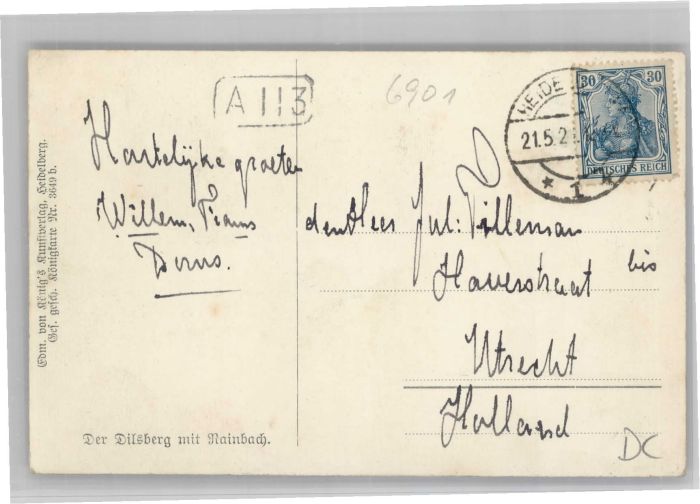 A 113
6901
Hartelijke groeten
Willem, Frans
Dorus.
HEIDE
21.5.2
* 1 k
30 30
DEUTSCHES REICH
den Heer Jul: Pilleman
Haverstraat bis
Utrecht
Holland
DC
Der Dilsberg mit Rainbach.
Edm. von König's Kunstverlag, Heidelberg.
Ges. gesch. Königkarte Nr. 3649 b.